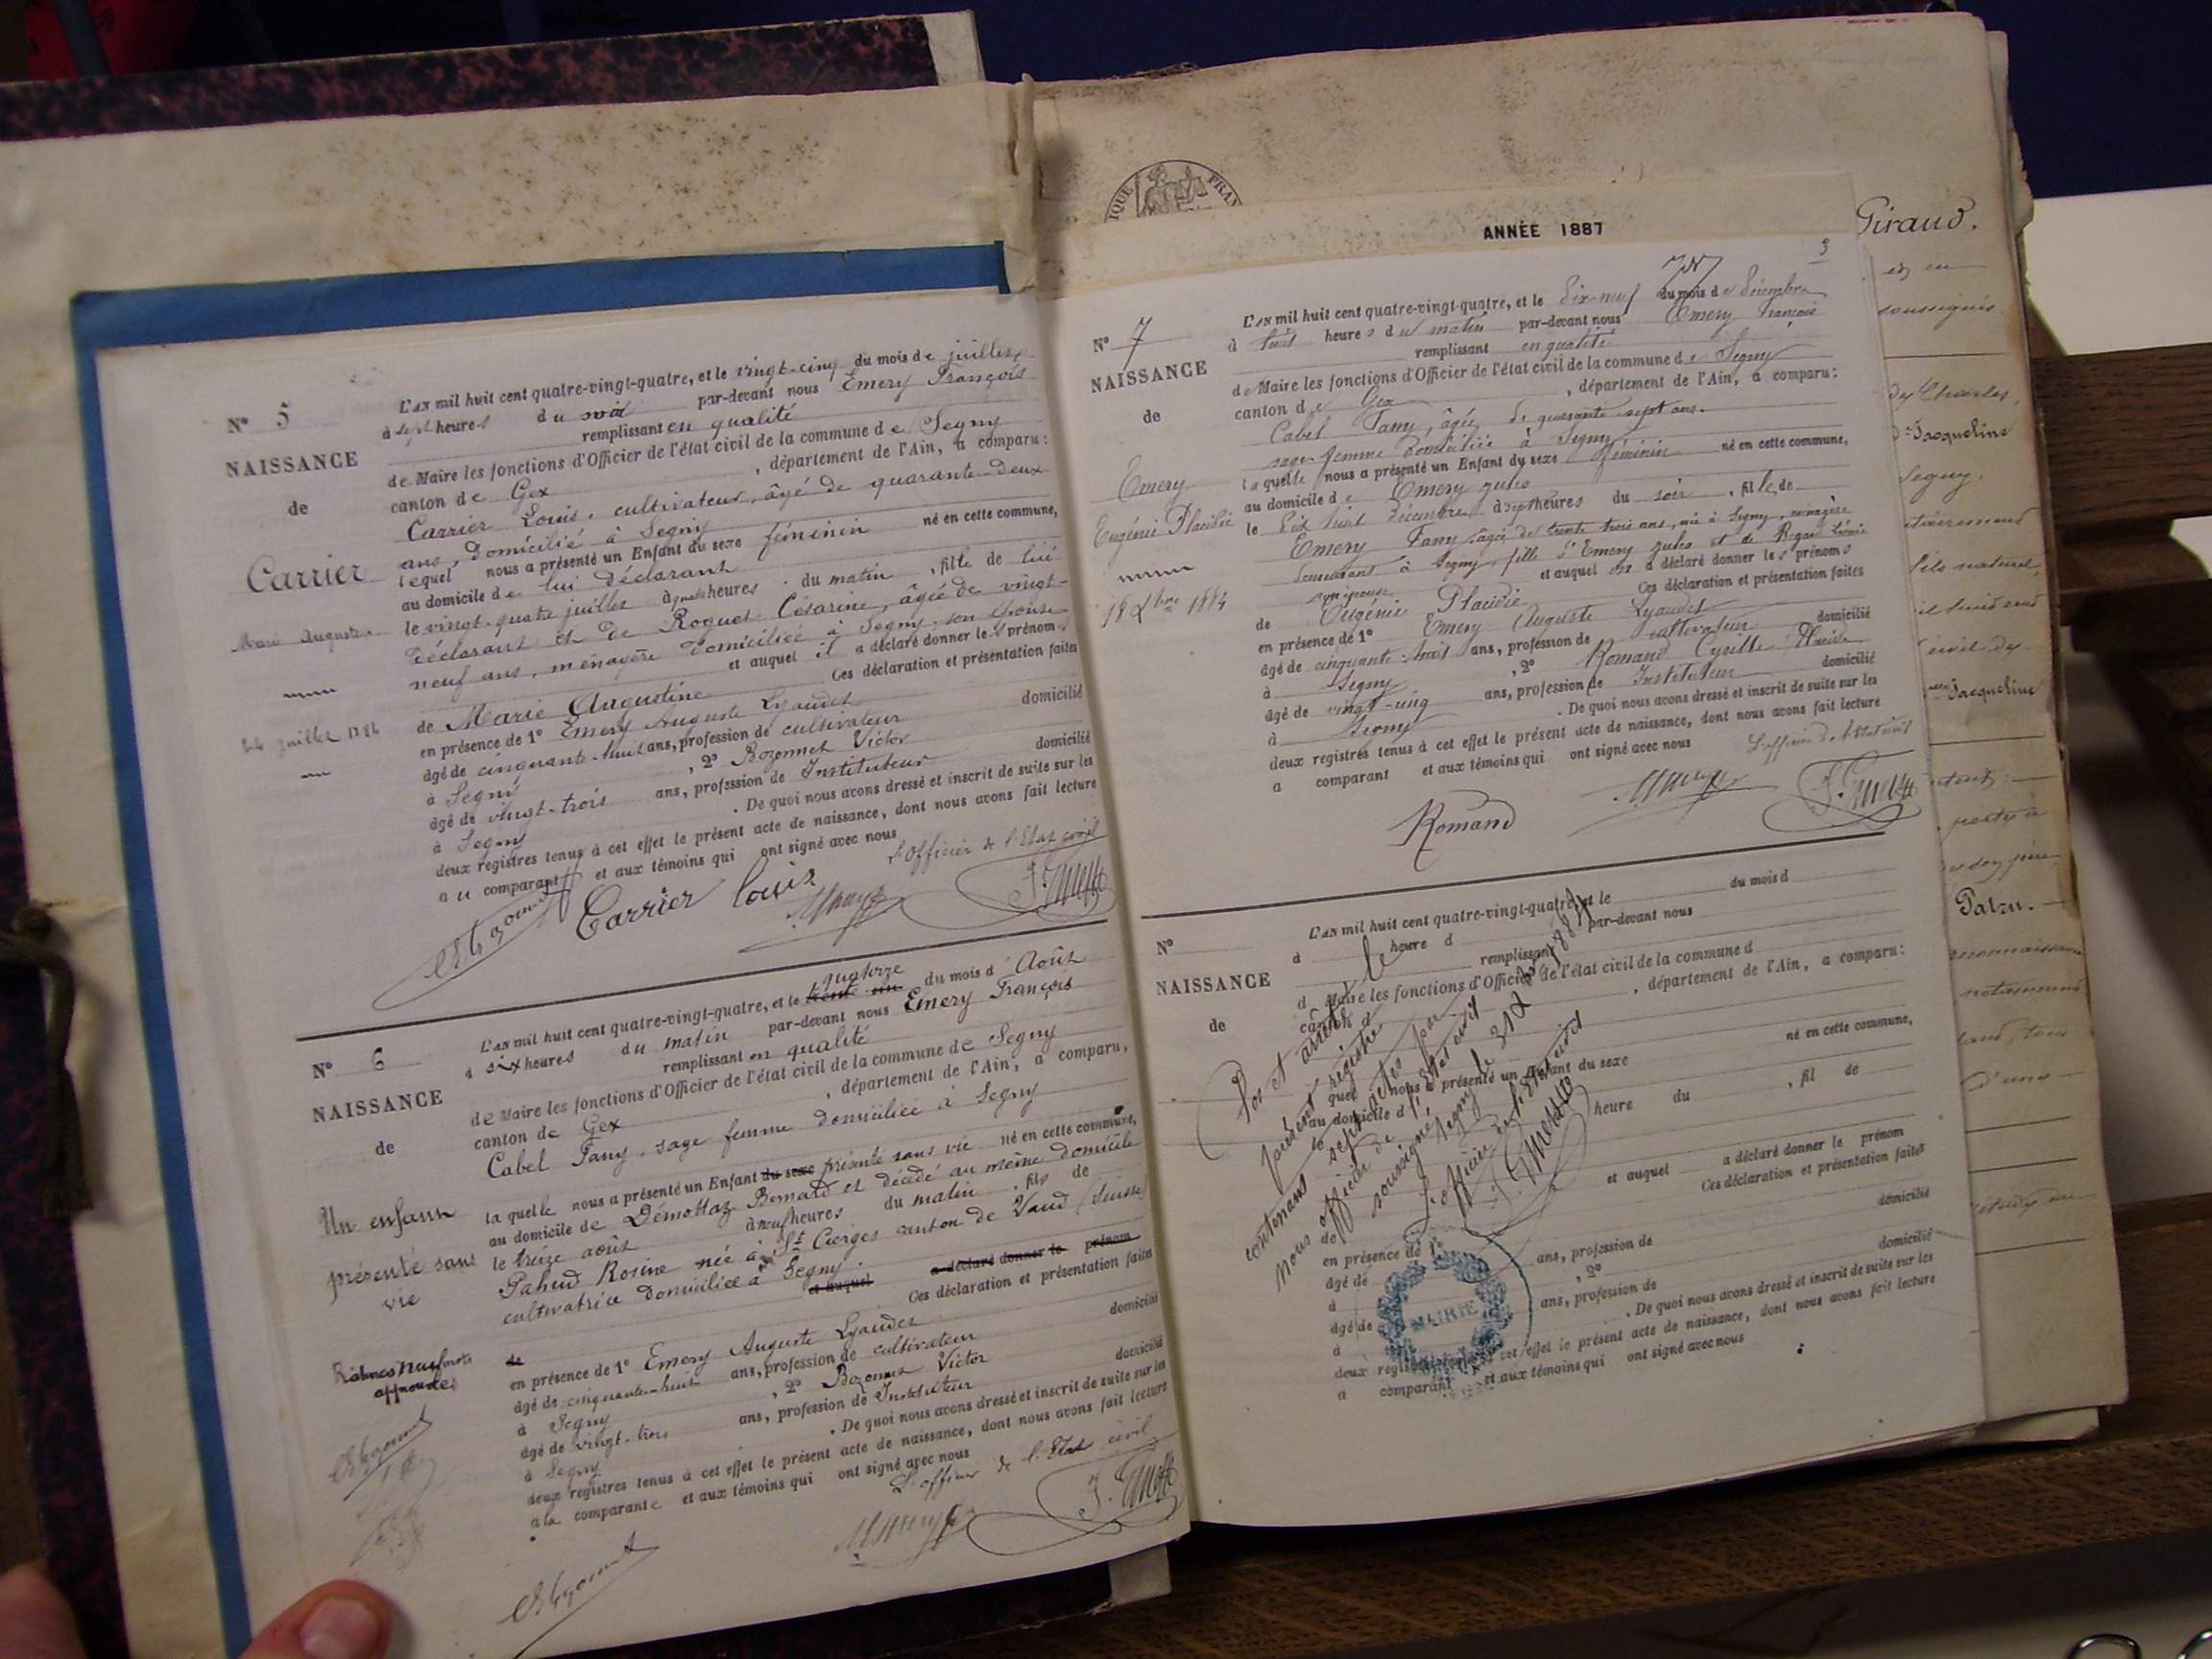 N° 5
NAISSANCE
de
Carrier
Marie Augustine
24 juillet 1884
L'an mil huit cent quatre-vingt-quatre, et le vingt-cinq du mois de juillet
à sept heures du soir par-devant nous Emery François
remplissant en qualité
de Maire les fonctions d'Officier de l'état civil de la commune de Segny
canton de Gex, département de l'Ain, a comparu:
Carrier Louis, cultivateur, âgé de quarante-deux
ans, domicilié à Segny
lequel nous a présenté un Enfant du sexe féminin né en cette commune,
au domicile de lui déclarant
le vingt-quatre juillet à quatre heures du matin, fille de lui
déclarant et de Roquet Césarine, âgée de vingt-
neuf ans, ménagère domiciliée à Segny, son épouse
et auquel il a déclaré donner les prénoms
de Marie Augustine Ces déclaration et présentation faites
en présence de 1° Emery Auguste Lyaudet
âgé de cinquante-huit ans, profession de cultivateur domicilié
à Segny, 2° Bozonnet Victor
âgé de vingt-trois ans, profession de Instituteur domicilié
à Segny. De quoi nous avons dressé et inscrit de suite sur les
deux registres tenus à cet effet le présent acte de naissance, dont nous avons fait lecture
au comparant et aux témoins qui ont signé avec nous
L'Officier de l'Etat civil
Carrier louis
N° 6
NAISSANCE
de
Un enfant
présenté sans
vie
L'an mil huit cent quatre-vingt-quatre, et le quatorze du mois d'Août
à six heures du matin par-devant nous Emery François
remplissant en qualité
de Maire les fonctions d'Officier de l'état civil de la commune de Segny
canton de Gex, département de l'Ain, a comparu,
Cabel Fany, sage femme domiciliée à Segny
laquelle nous a présenté un Enfant du sexe présenté sans vie né en cette commune,
au domicile de Démottaz Bernard et décédé au même domicile
le treize août à neuf heures du matin, fils de
Pahud Rosine née à St Cierges canton de Vaud (Suisse)
cultivatrice domiciliée à Segny.
et auquel a déclaré donner le prénom
de Ces déclaration et présentation faites
en présence de 1° Emery Auguste Lyaudet
âgé de cinquante-huit ans, profession de cultivateur domicilié
à Segny, 2° Bozonnet Victor
âgé de vingt-trois ans, profession de Instituteur domicilié
à Segny. De quoi nous avons dressé et inscrit de suite sur les
deux registres tenus à cet effet le présent acte de naissance, dont nous avons fait lecture
a la comparante et aux témoins qui ont signé avec nous
L'officier de l'Etat civil
ANNÉE 1887
3
N° 7
NAISSANCE
de
Emery
Eugénie Placidie
18 Xbre 1884
L'an mil huit cent quatre-vingt-quatre, et le dix-neuf du mois de décembre
à huit heures du matin par-devant nous Emery François
remplissant en qualité
de Maire les fonctions d'Officier de l'état civil de la commune de Segny
canton de Gex, département de l'Ain, a comparu:
Cabel Fany, âgée de quarante-sept ans.
sage-femme domiciliée à Segny
laquelle nous a présenté un Enfant du sexe féminin né en cette commune,
au domicile de Emery Jules
le dix huit décembre à sept heures du soir, fille de
Emery Fany âgée de trente trois ans, née à Segny, ménagère
demeurant à Segny, fille d'Emery Jules et de
et auquel on a déclaré donner les prénoms
de Eugénie Placidie Ces déclaration et présentation faites
en présence de 1° Emery Auguste Lyaudet
âgé de cinquante-huit ans, profession de cultivateur domicilié
à Segny, 2° Romand Cyrille
âgé de vingt-cinq ans, profession de Instituteur domicilié
à Segny. De quoi nous avons dressé et inscrit de suite sur les
deux registres tenus à cet effet le présent acte de naissance, dont nous avons fait lecture
a comparant et aux témoins qui ont signé avec nous
L'officier de l'Etat civil
Romand
N°
NAISSANCE
de
L'an mil huit cent quatre-vingt-quatre, et le du mois d
à heure d par-devant nous
remplissant
d Maire les fonctions d'Officier de l'état civil de la commune d
canton d, département de l'Ain, a comparu:
quel nous a présenté un Enfant du sexe né en cette commune,
au domicile d
le heure du, fil de
et auquel a déclaré donner le prénom
de Ces déclaration et présentation faites
en présence de 1°
âgé de ans, profession de domicilié
à, 2°
âgé de ans, profession de domicilié
à. De quoi nous avons dressé et inscrit de suite sur les
deux registres cet effet le présent acte de naissance, dont nous avons fait lecture
a comparant et aux témoins qui ont signé avec nous
Clos et arrêté le
présent registre
contenant sept actes par
nous officier de l'Etat civil
soussigné,
Segny le 31 Xbre 1884
L'officier de l'Etat civil
MAIRIE
Giraud.
soussignés.
de Charles,
Jacqueline
Segny.
fils naturel,
Jacqueline
Patru.